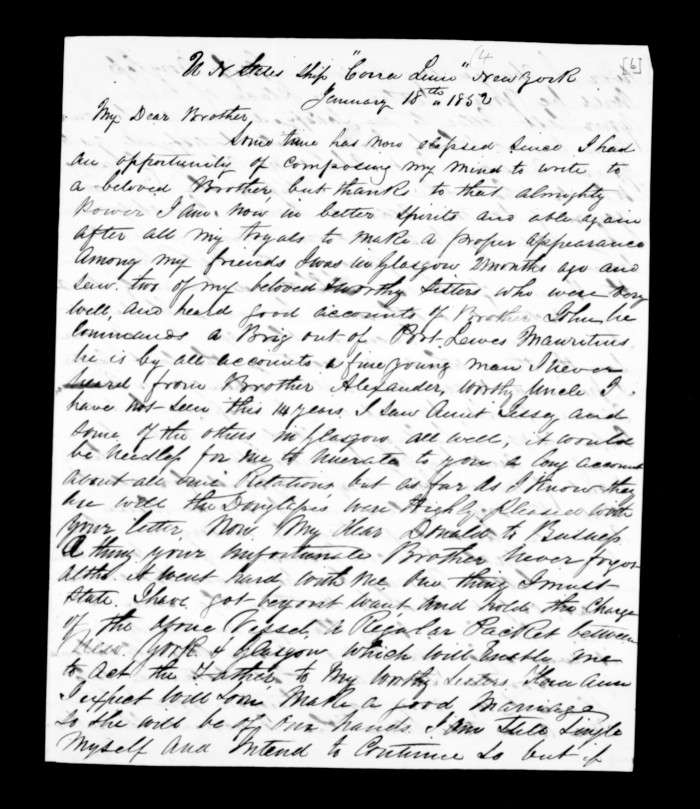 [6]
U N States Ship "Corra Linn" New York
January 18th 1852
My Dear Brother,
Some time has now elapsed since I had
an opportunity of composing my mind to write to
a beloved Brother, but thanks to that almighty
Power I am now in better spirits and able again
after all my tryals to make a proper appearance
Among my friends I was in Glasgow 2 months ago and
saw two of my beloved worthy Sisters who were very
well, and heard good accounts of Brother John he
Commands a Brig out of Port Lewes Mauritius
he is by all accounts a fine young man I never
heard from Brother Alexander, worthy Uncle J.
have not seen this 14 years, I saw Aunt Jessey and
some of the others in Glasgow all well, it would
be needless for me to a long account
about all our Relations but as far as I know they
are well the were Highly pleased with
your letter, Now My dear Donald to Busness
A thing your unfortunate Brother never forgot
altho it went hard with me One thing I must
State. I have got beyont want and hold the Charge
of the above Vessel, a Regular Packet between
New York & Glasgow which will Enable me
to act the Father to My worthy Sisters Ann
I expect will soon make a good Marriage
So she will be of our hands. I am Still Single
Myself and Intend to Continue So but if